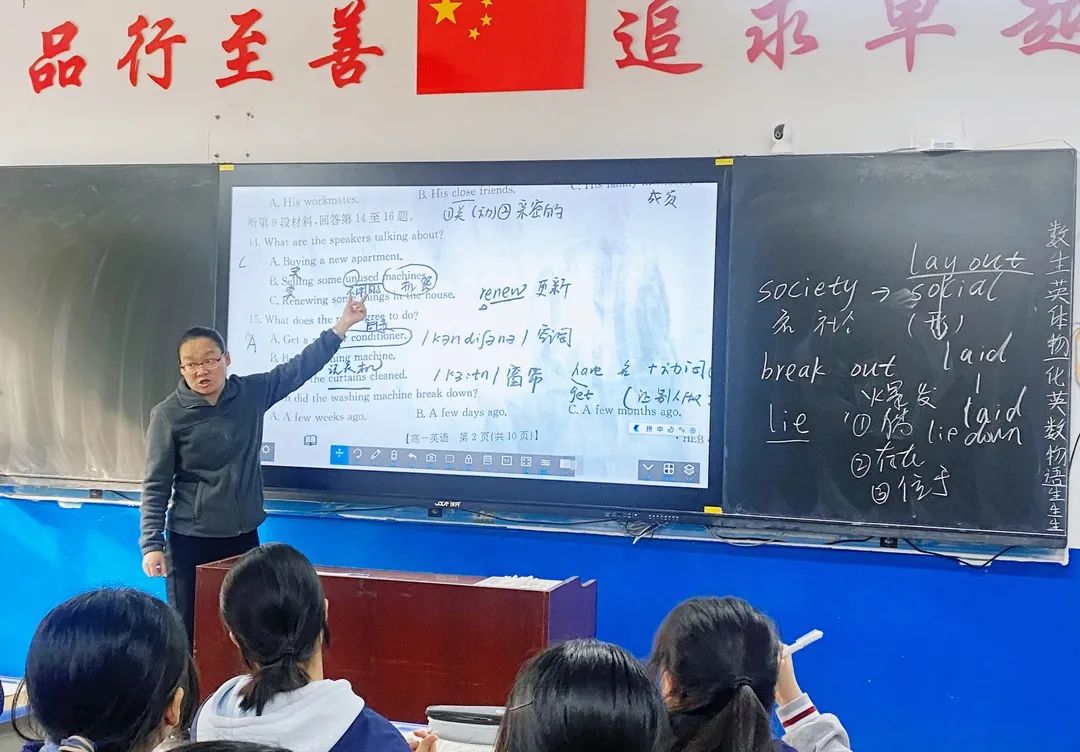 品行至善
追求卓越
A. His workmates.
B. His close friends.
①关(动)②亲密的
成员
听第9段材料,回答第14至16题。
14. What are the speakers talking about?
A. Buying a new apartment.
B. Selling some unused machines.
机器
C. Renewing some things in the house.
renew 更新
15. What does the
gree to do?
A
A. Get a
conditioner.
空调
B. H
ing machine.
the curtains cleaned.
窗帘
have
get
did the washing machine break down?
A. A few weeks ago.
B. A few days ago.
C. A few months ago.
【高一英语 第2页(共10页)】
HEB
lay out
society → social
社会
(形)
break out
laid
爆发
laid
lie
①
lie down
②存在
③位于
数生英体物化英数物语生生生